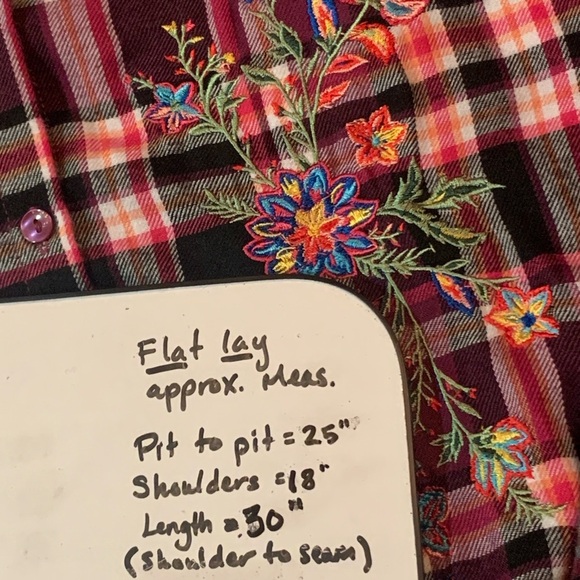 Flat lay
approx. Meas.
Pit to pit = 25"
Shoulders = 18"
Length = 30"
(shoulder to seam)